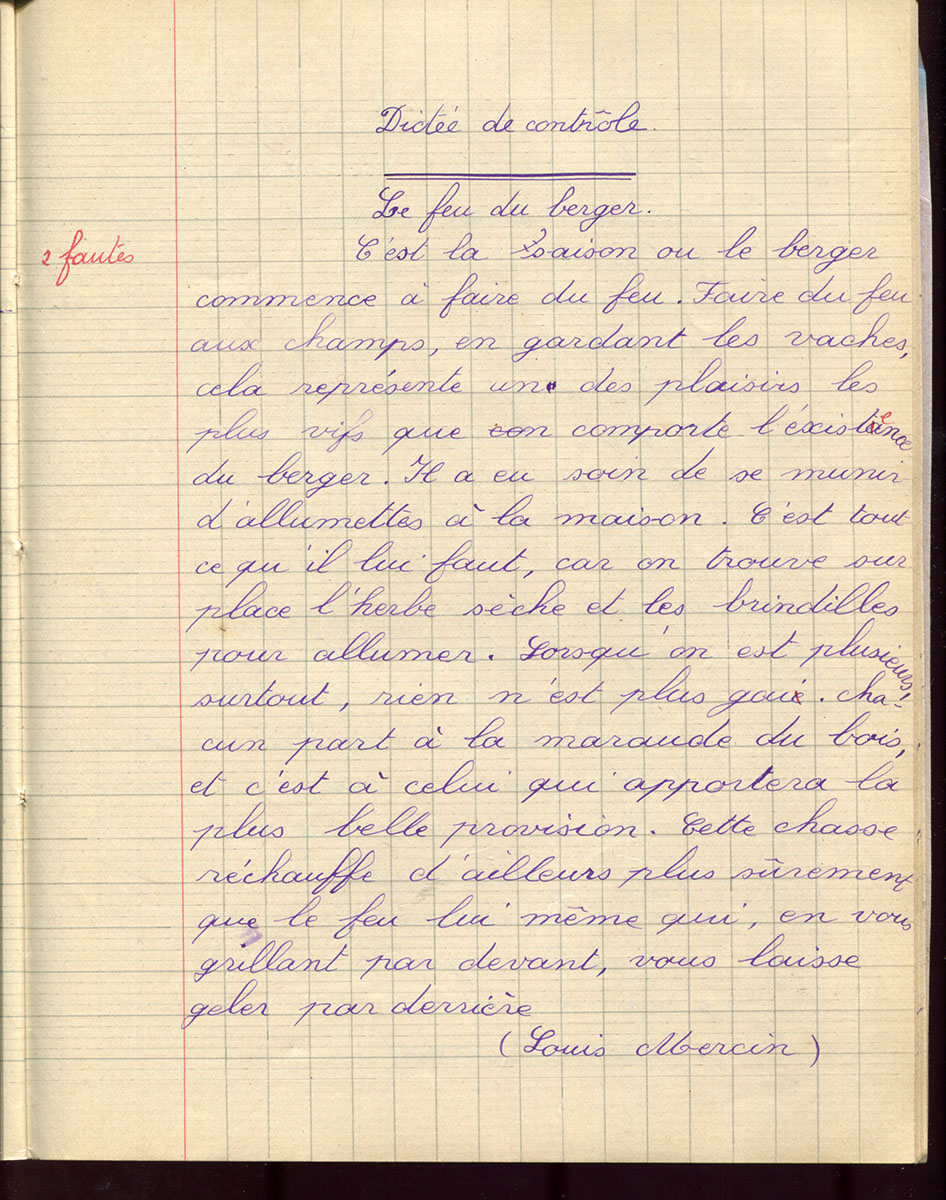 Dictée de contrôle.
Le feu du berger.
2 fautes
C'est la saison ou le berger
commence à faire du feu. Faire du feu
aux champs, en gardant les vaches,
cela représente un des plaisirs les
plus vifs que comporte l'éxistence
du berger. Il a eu soin de se munir
d'allumettes à la maison. C'est tout
ce qu'il lui faut, car on trouve sur
place l'herbe sèche et les brindilles
pour allumer. Lorsqu'on est plusieurs,
surtout, rien n'est plus gai. Cha-
cun part à la maraude du bois,
et c'est à celui qui apportera la
plus belle provision. Cette chasse
réchauffe d'ailleurs plus sûrement
que le feu lui même qui, en vous
grillant par devant, vous laisse
geler par derrière
(Louis Mercin)